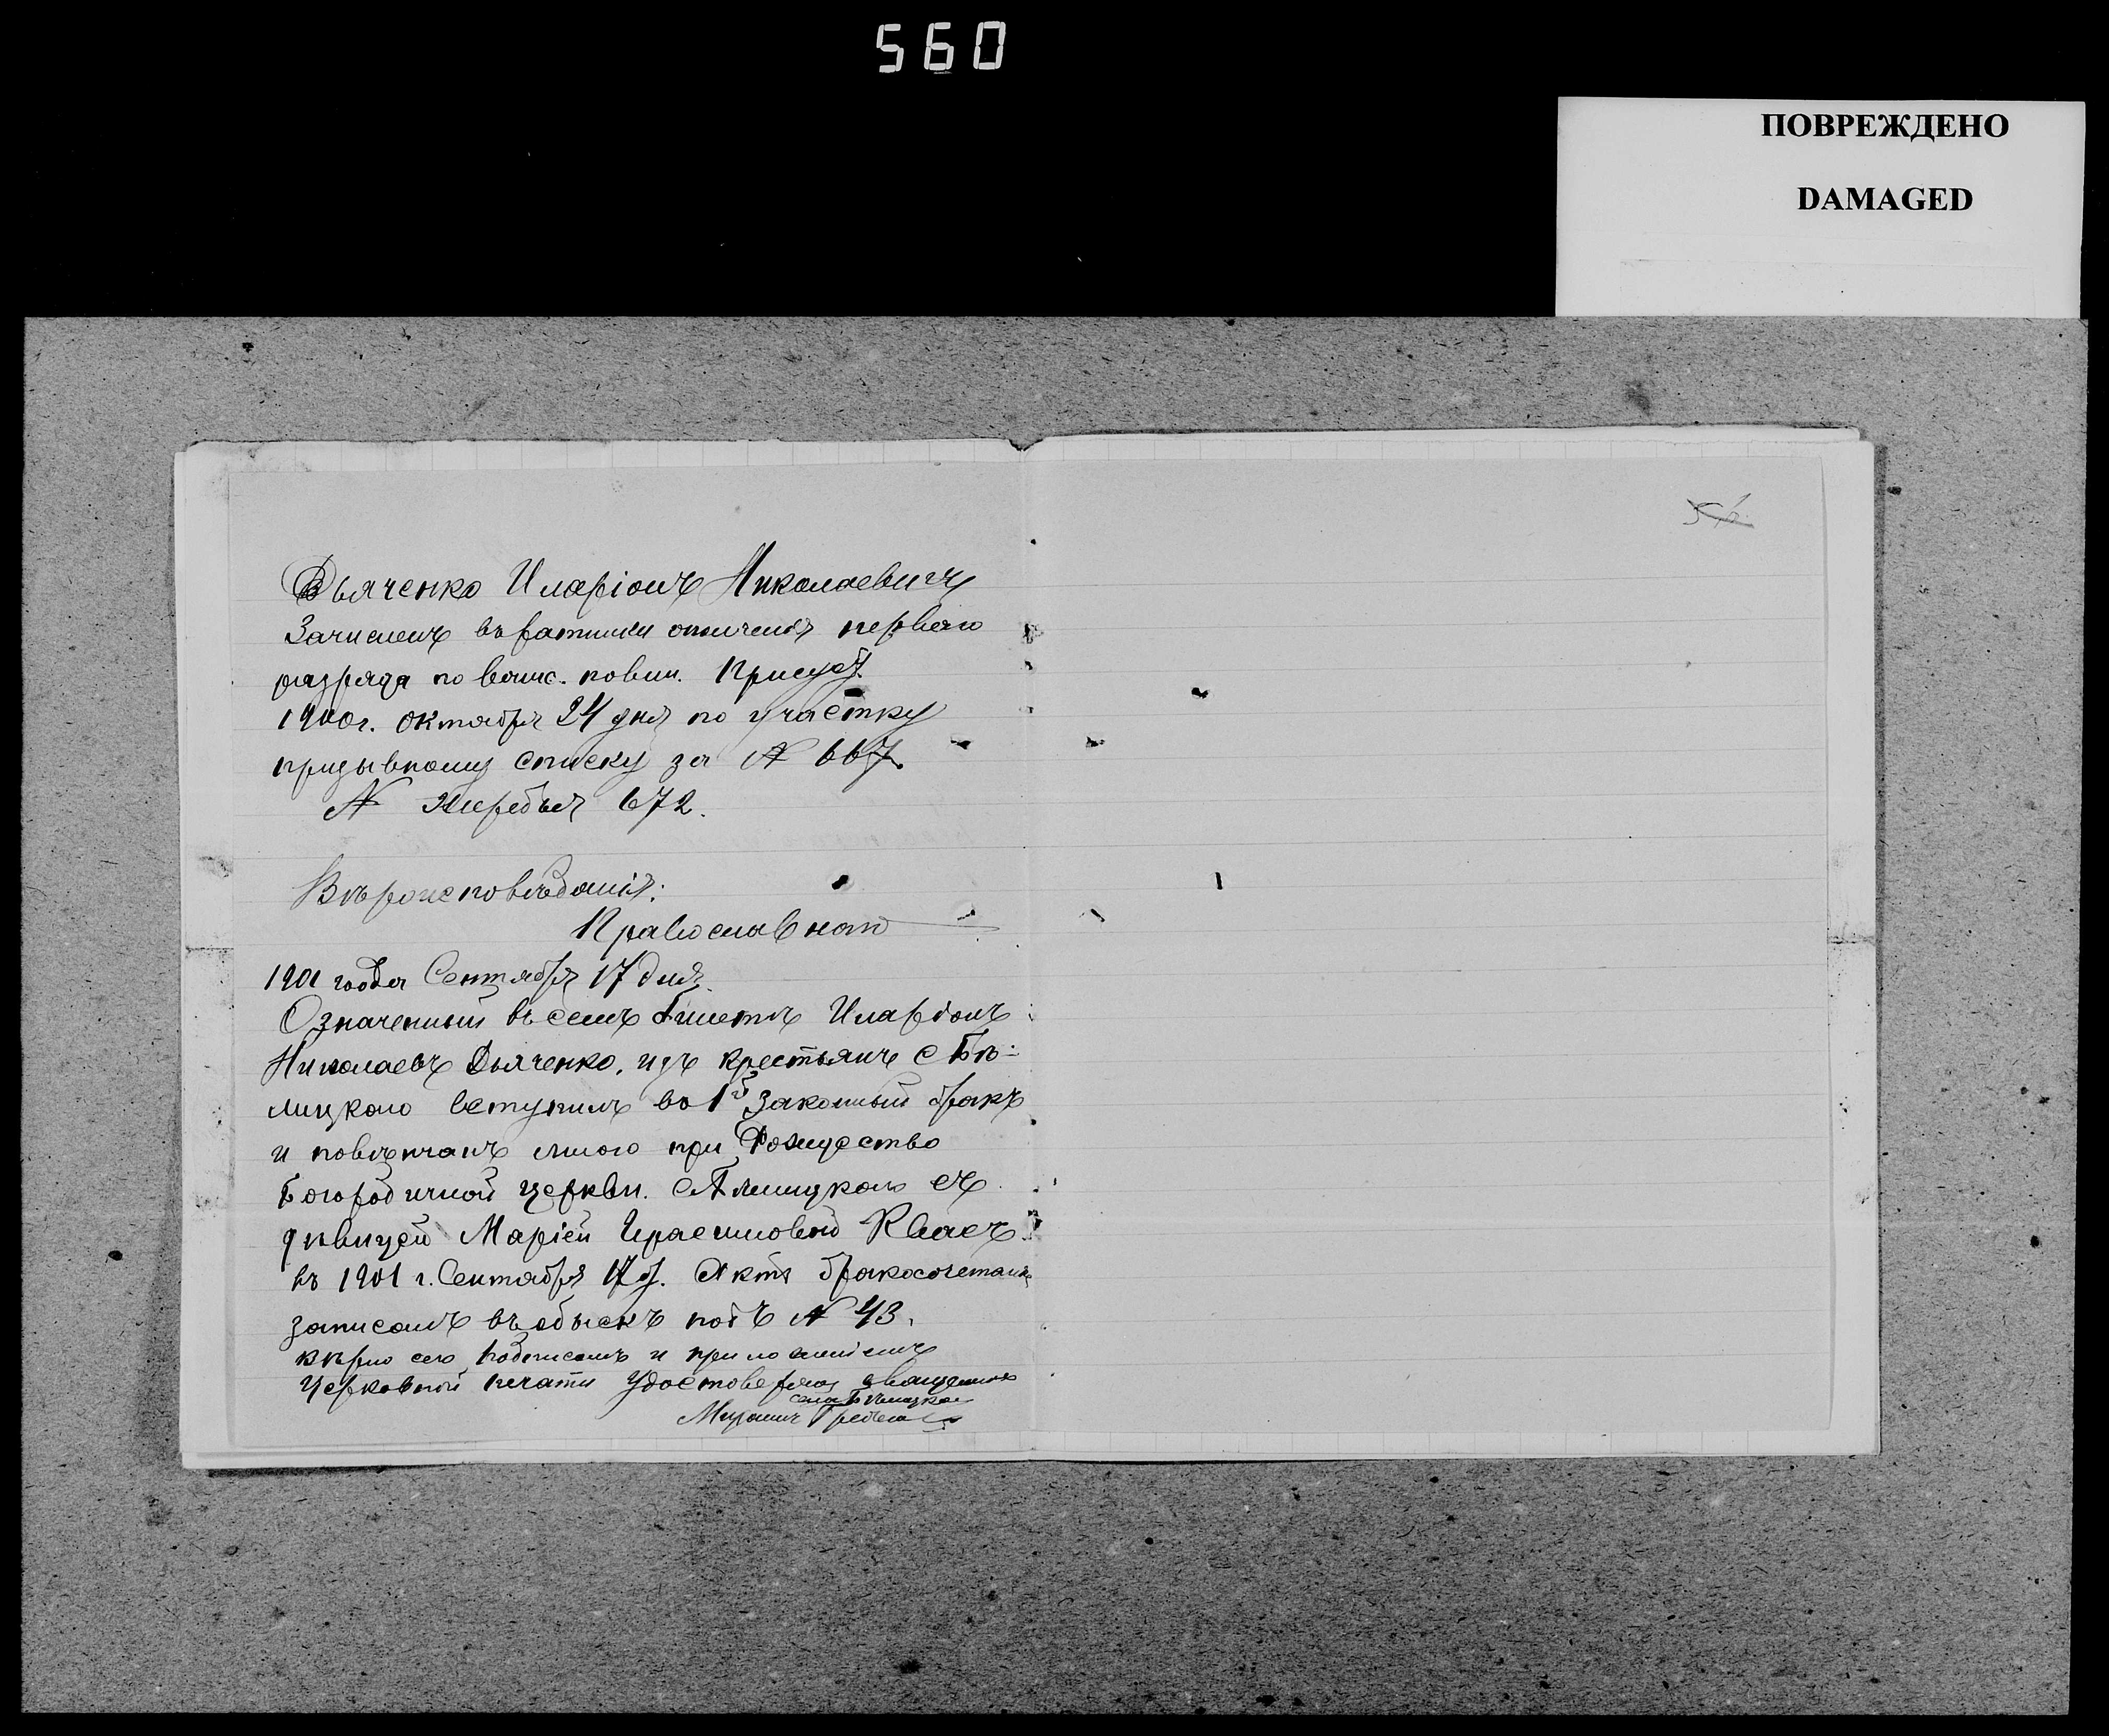 560
ПОВРЕЖДЕНО
DAMAGED
Дьяченко Иларіонъ Николаевичъ
Зачисленъ въ ратники ополченія перваго
разряда по воинс. повин. Присут.
1900 г. октября 24 дня по участку
призывному списку за № 667.
№ жеребья 672.
Вѣроисповѣданія:
Православнаго
1901 года Сентября 17 дня.
Означенный въ семъ билетѣ Иларіонъ
Николаевъ Дьяченко, изъ крестьянъ с Бѣ-
лицкаго вступилъ во 1й законный бракъ
и повѣнчанъ мною при Рождество
Богородичной церкви. с Бѣлицкаго съ
дѣвицей Маріей Герасимовой Квасъ
въ 1901 г. Сентября 17 д. Актъ бракосочетанія
записанъ въ обыскъ подъ № 43.
подписомъ и приложеніемъ
Церковной печати удостоверяю священникъ
села Бѣлицкаго
Михаилъ